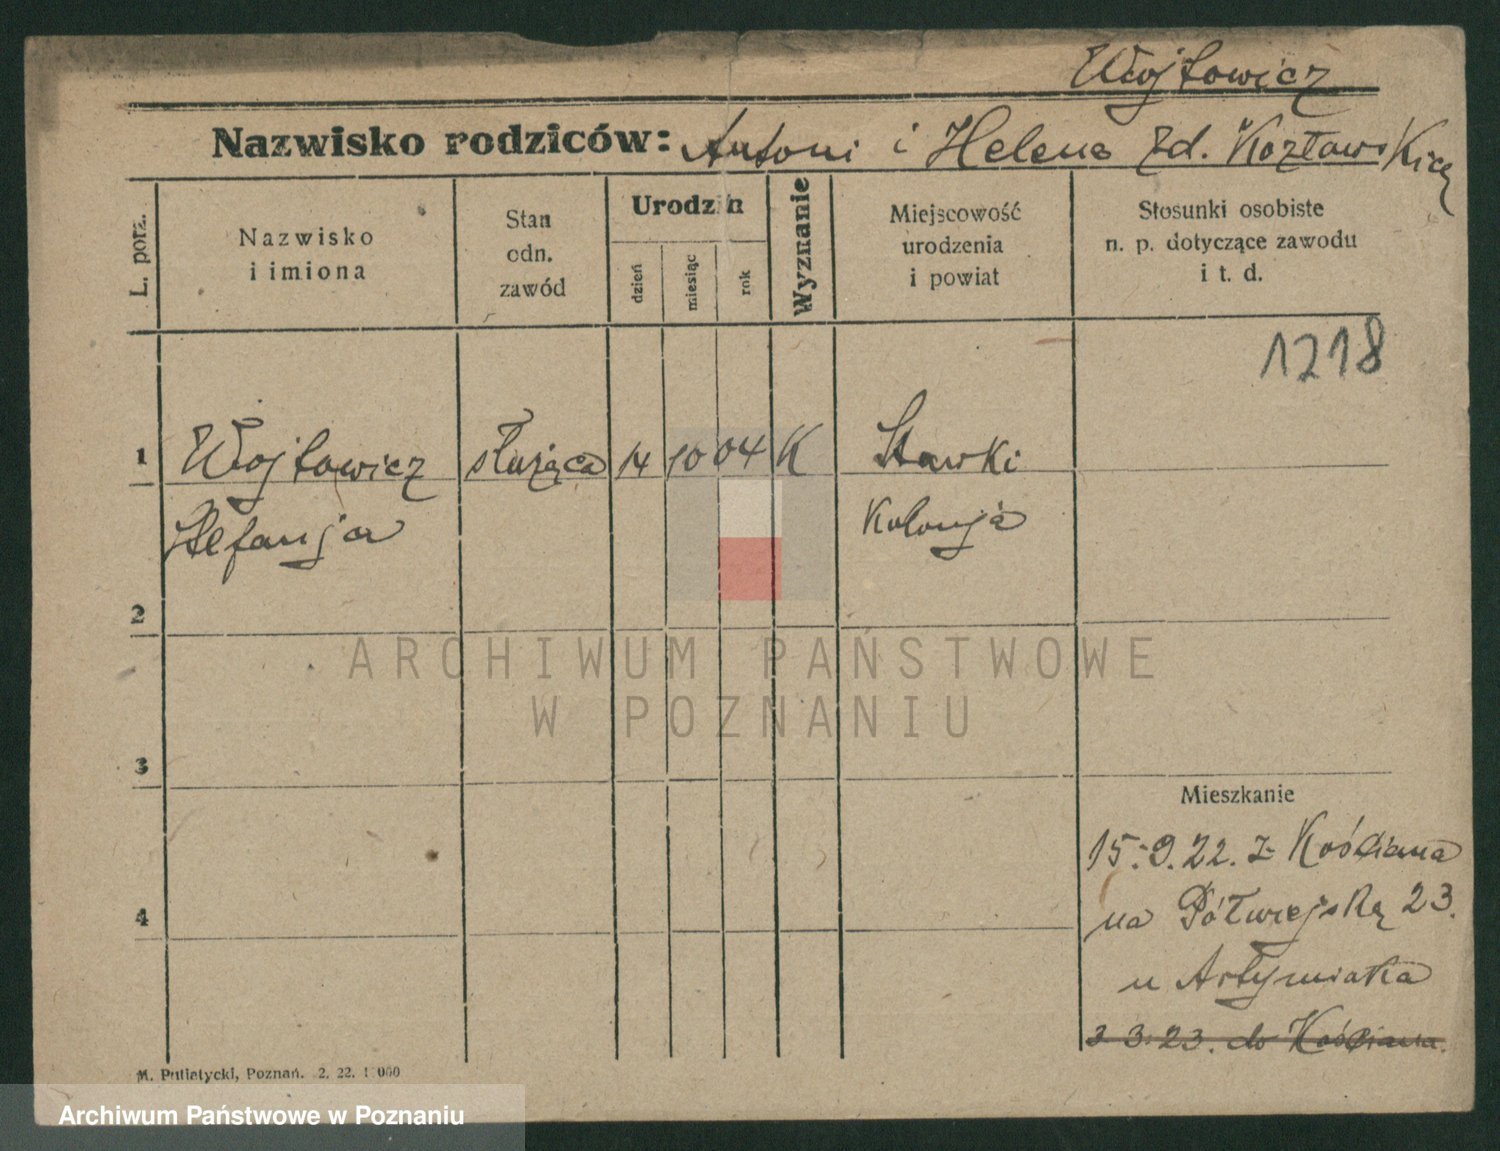 Wojtowicz
Nazwisko rodziców: Antoni i Helena zd. Kozłowskich
L. porz.
Nazwisko
i imiona
Stan
odn.
zawód
Urodzin
dzień
miesiąc
rok
Wyznanie
Miejscowość
urodzenia
i powiat
Stosunki osobiste
n. p. dotyczące zawodu
i t. d.
1218
1 Wojtowicz służąca 14 10 04 K Stawki
Stefanja Kolonja
2
3
4
Mieszkanie
15.9.22. z Kościana
na Półwiejską 23.
u Artymiaka
2. 3. 23. do Kościana.
M. Putiatycki, Poznań. 2. 22.
ARCHIWUM PAŃSTWOWE
W POZNANIU
Archiwum Państwowe w Poznaniu